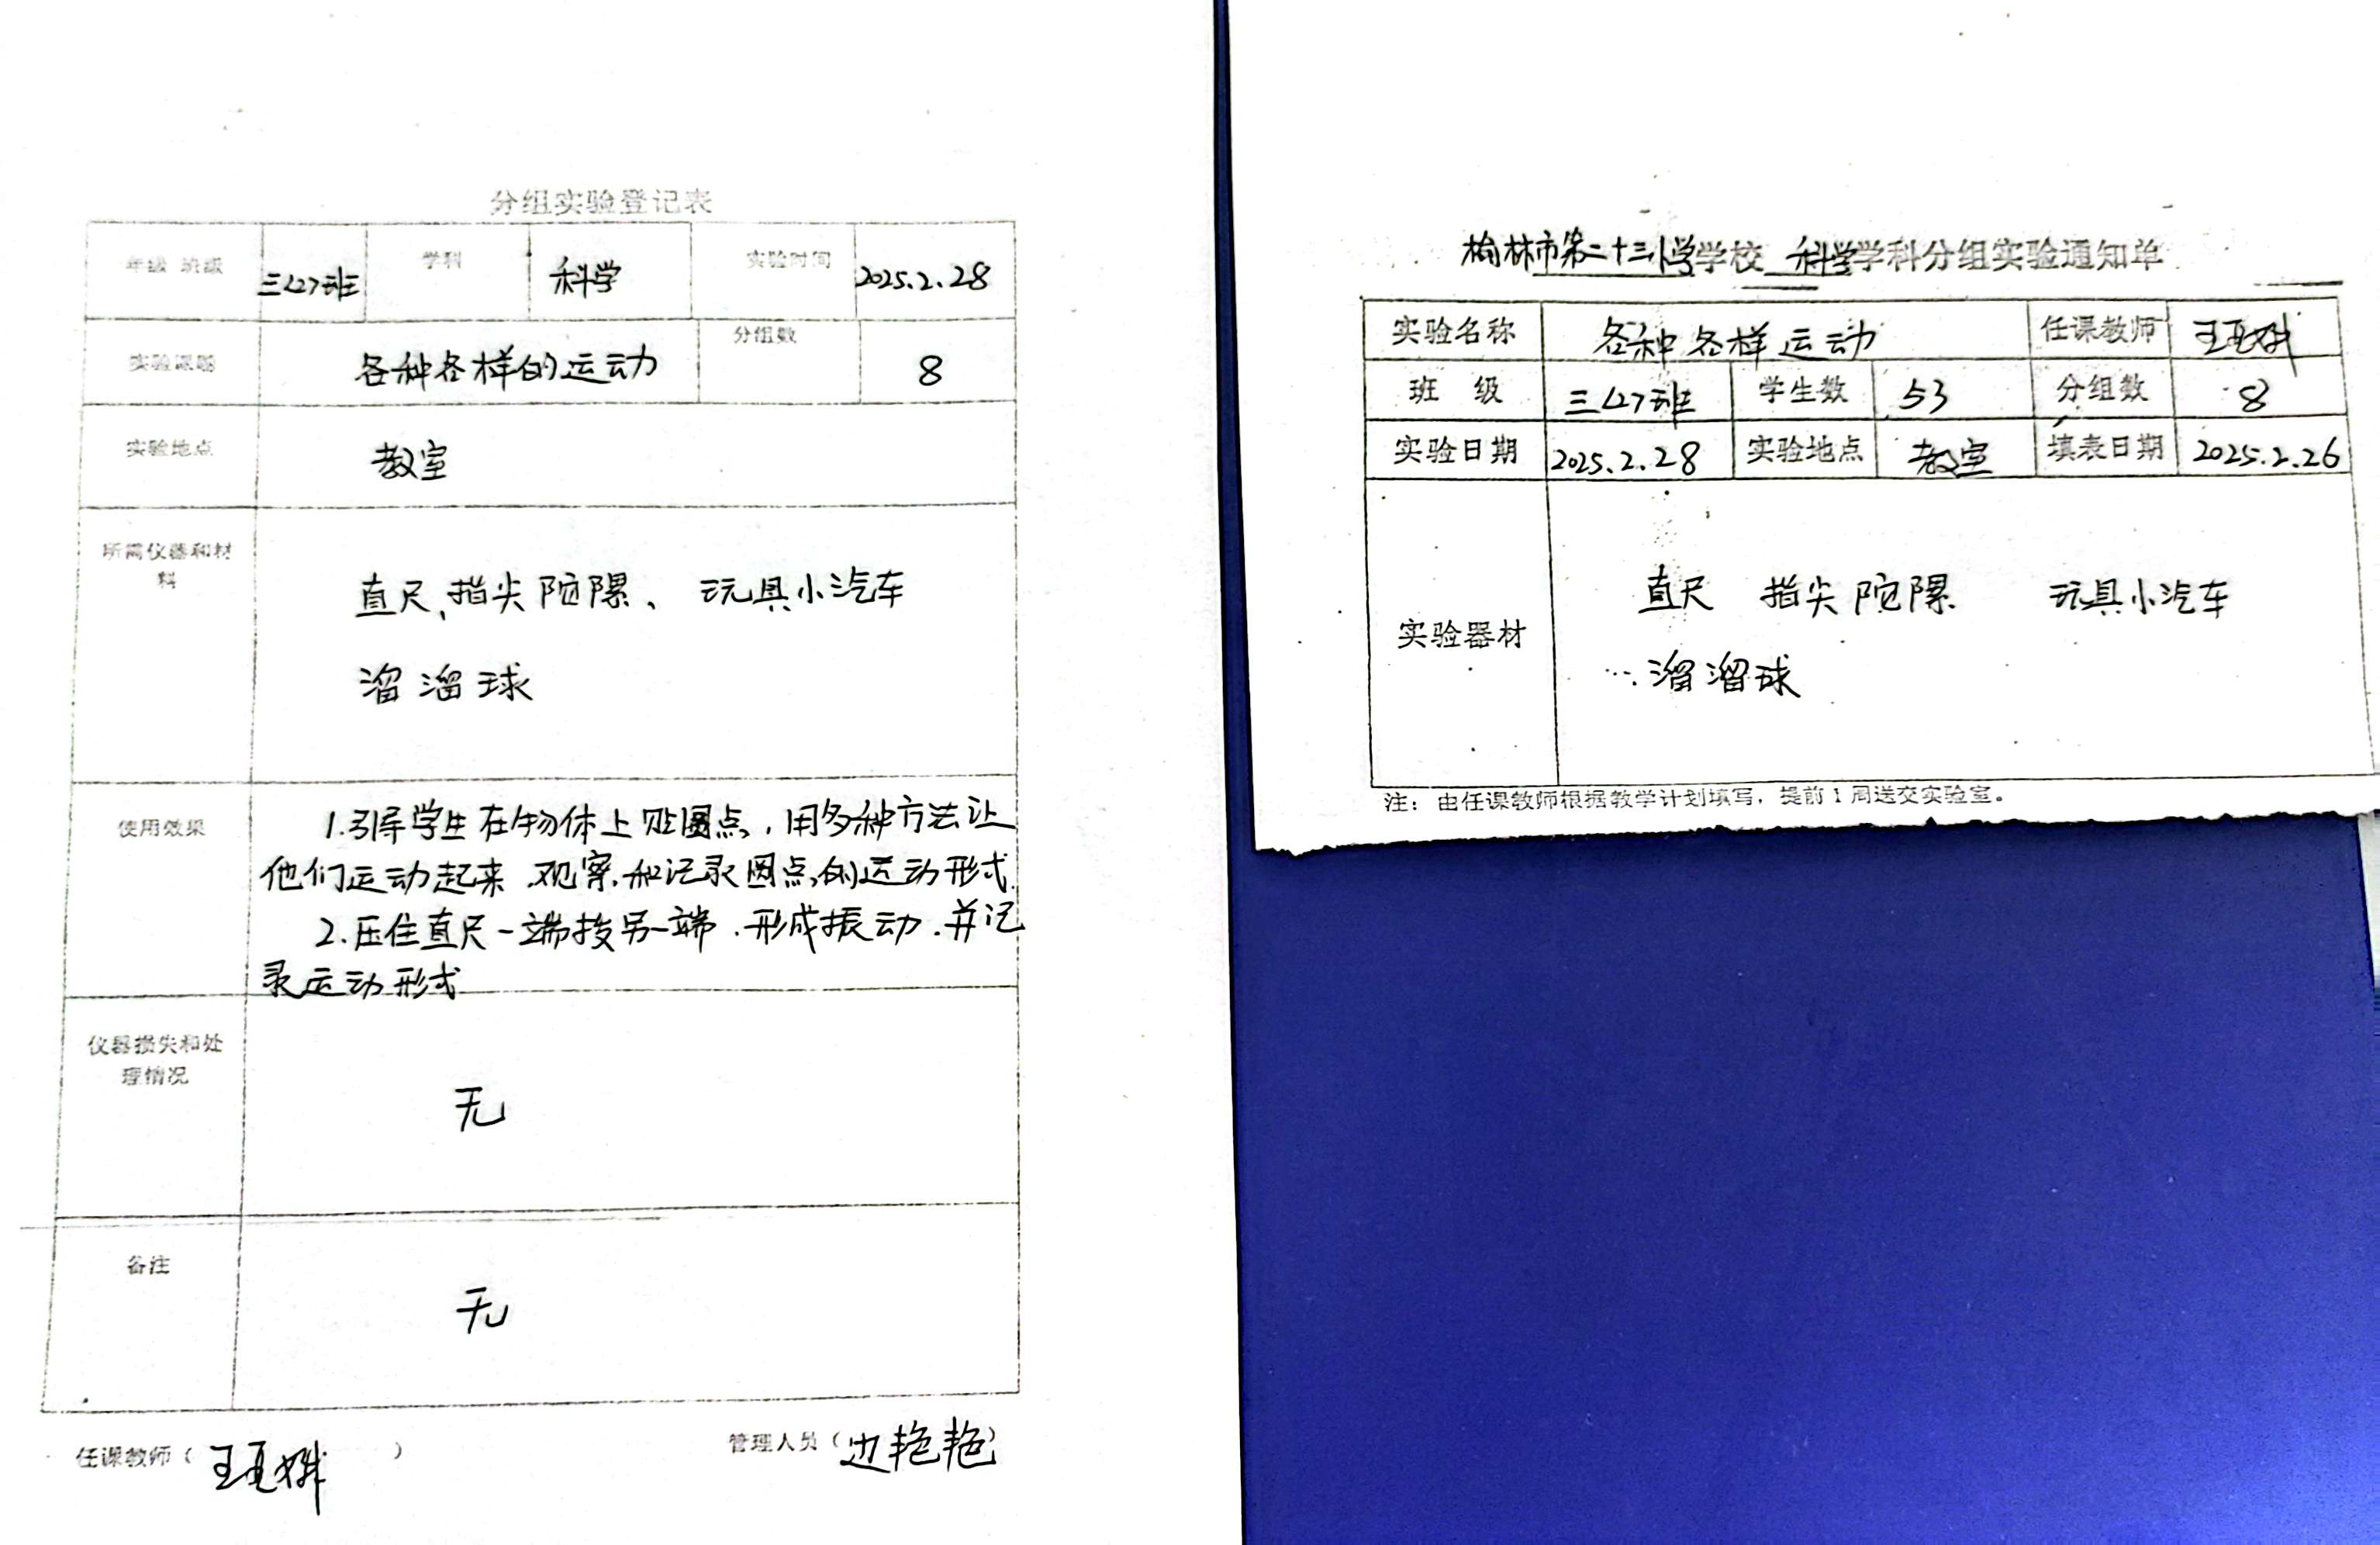 分组实验登记表
年级 班级 三(2)班 学科 科学 实验时间 2025.2.28
实验课题 各种各样的运动 分组数 8
实验地点 教室
所需仪器和材
料
直尺、指尖陀螺、 玩具小汽车
溜溜球
使用效果
1.引导学生在物体上贴圆点，用多种方法让
他们运动起来.观察和记录圆点的运动形式.
2.压住直尺一端拨另一端.形成振动.并记
录运动形式
仪器损失和处
理情况
无
备注
无
任课教师（ 王 ）
管理人员（边艳艳）
榆林市第二十三小学学校 科学学科分组实验通知单
实验名称 各种各样运动 任课教师 王
班 级 三(2)班 学生数 53 分组数 8
实验日期 2025.2.28 实验地点 教室 填表日期 2025.2.26
实验器材
直尺 指尖陀螺 玩具小汽车
溜溜球
注：由任课教师根据教学计划填写，提前1周送交实验室。